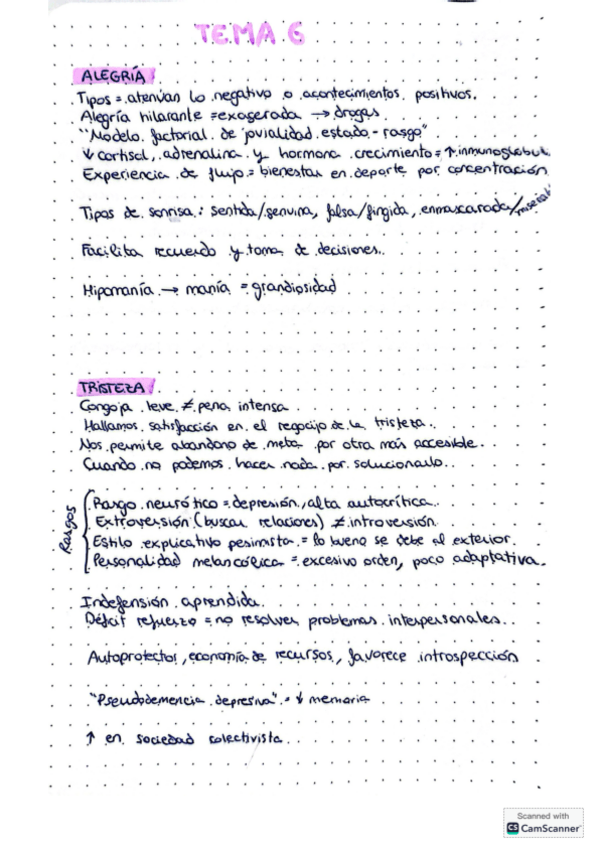 TEMA 6
ALEGRÍA
Tipos = atenúan lo negativo o acontecimientos positivos.
Alegría hilarante = exagerada → drogas
"Modelo factorial de jovialidad estado - rasgo"
↓ cortisol, adrenalina y hormona crecimiento = ↑ inmunoglobul.
Experiencia de flujo = bienestar en deporte por concentración
Tipos de sonrisa: sentida/genuina, falsa/fingida, enmascarada/
Facilita recuerdo y toma de decisiones.
Hipomanía → manía = grandiosidad
TRISTEZA
Congoja leve ≠ pena intensa
Hallamos satisfacción en el regocijo de la tristeza.
Nos permite abandono de meta por otra más accesible.
Cuando no podemos hacer nada por solucionarlo.
Rasgos
Rasgo neurótico = depresión, alta autocrítica.
Extroversión (buscar relaciones) ≠ introversión
Estilo explicativo pesimista = lo bueno se debe al exterior.
Personalidad melancólica = excesivo orden, poco adaptativa.
Indefensión aprendida
Déficit refuerzo = no resolver problemas interpersonales.
Autoprotector, economía de recursos, favorece introspección
"Pseudodemencia depresiva" = ↓ memoria
↑ en sociedad colectivista
Scanned with
CS CamScanner